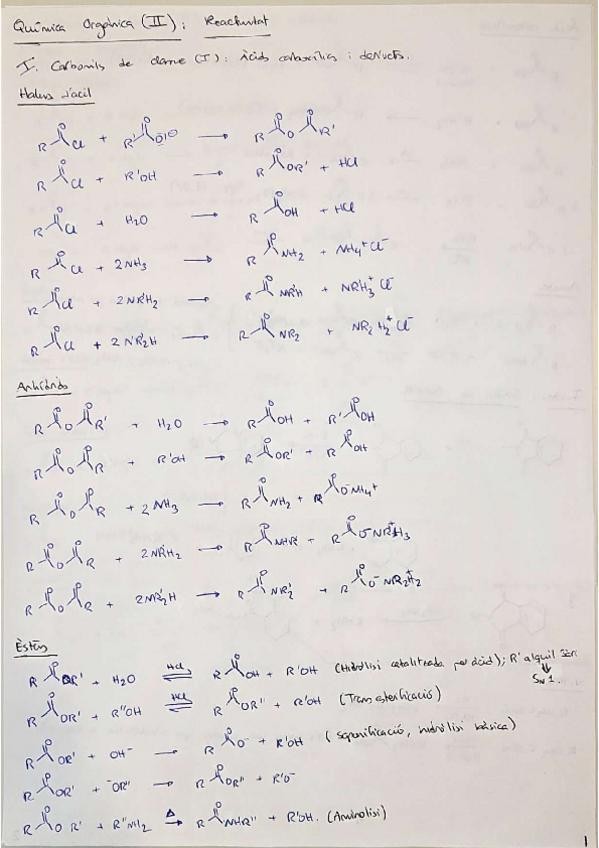 Química Orgànica (II): Reactivitat
I. Carbonils de classe (I): Àcids carboxílics i derivats.
Halurs d'àcil
R O Cl + R' O O⊖ → R O O O R'
R O Cl + R'OH → R O OR' + HCl
R O Cl + H2O → R O OH + HCl
R O Cl + 2NH3 → R O NH2 + NH4+Cl-
R O Cl + 2NR'H2 → R O NR'H + NR'H3+ Cl-
R O Cl + 2NR'2H → R O NR2 + NR2H2+ Cl-
Anhídrids
R O O O R' + H2O → R O OH + R' O OH
R O O O R + R'OH → R O OR' + R O OH
R O O O R + 2NH3 → R O NH2 + R O O-NH4+
R O O O R + 2NR'H2 → R O NHR' + R O O-NR'H3+
R O O O R + 2NR'2H → R O NR'2 + R O O-NR'2H2+
Èsters
R O OR' + H2O HCl ⇌ R O OH + R'OH (Hidròlisi catalitzada per àcid); R' alquil 3èri
⇓
SN1.
R O OR' + R''OH HCl ⇌ R O OR'' + R'OH (Transesterificació)
R O OR' + OH- → R O O- + R'OH (saponificació, hidròlisi bàsica)
R O OR' + -OR'' → R O OR'' + R'O-
R O OR' + R''NH2 Δ → R O NHR'' + R'OH. (Aminòlisi)
1